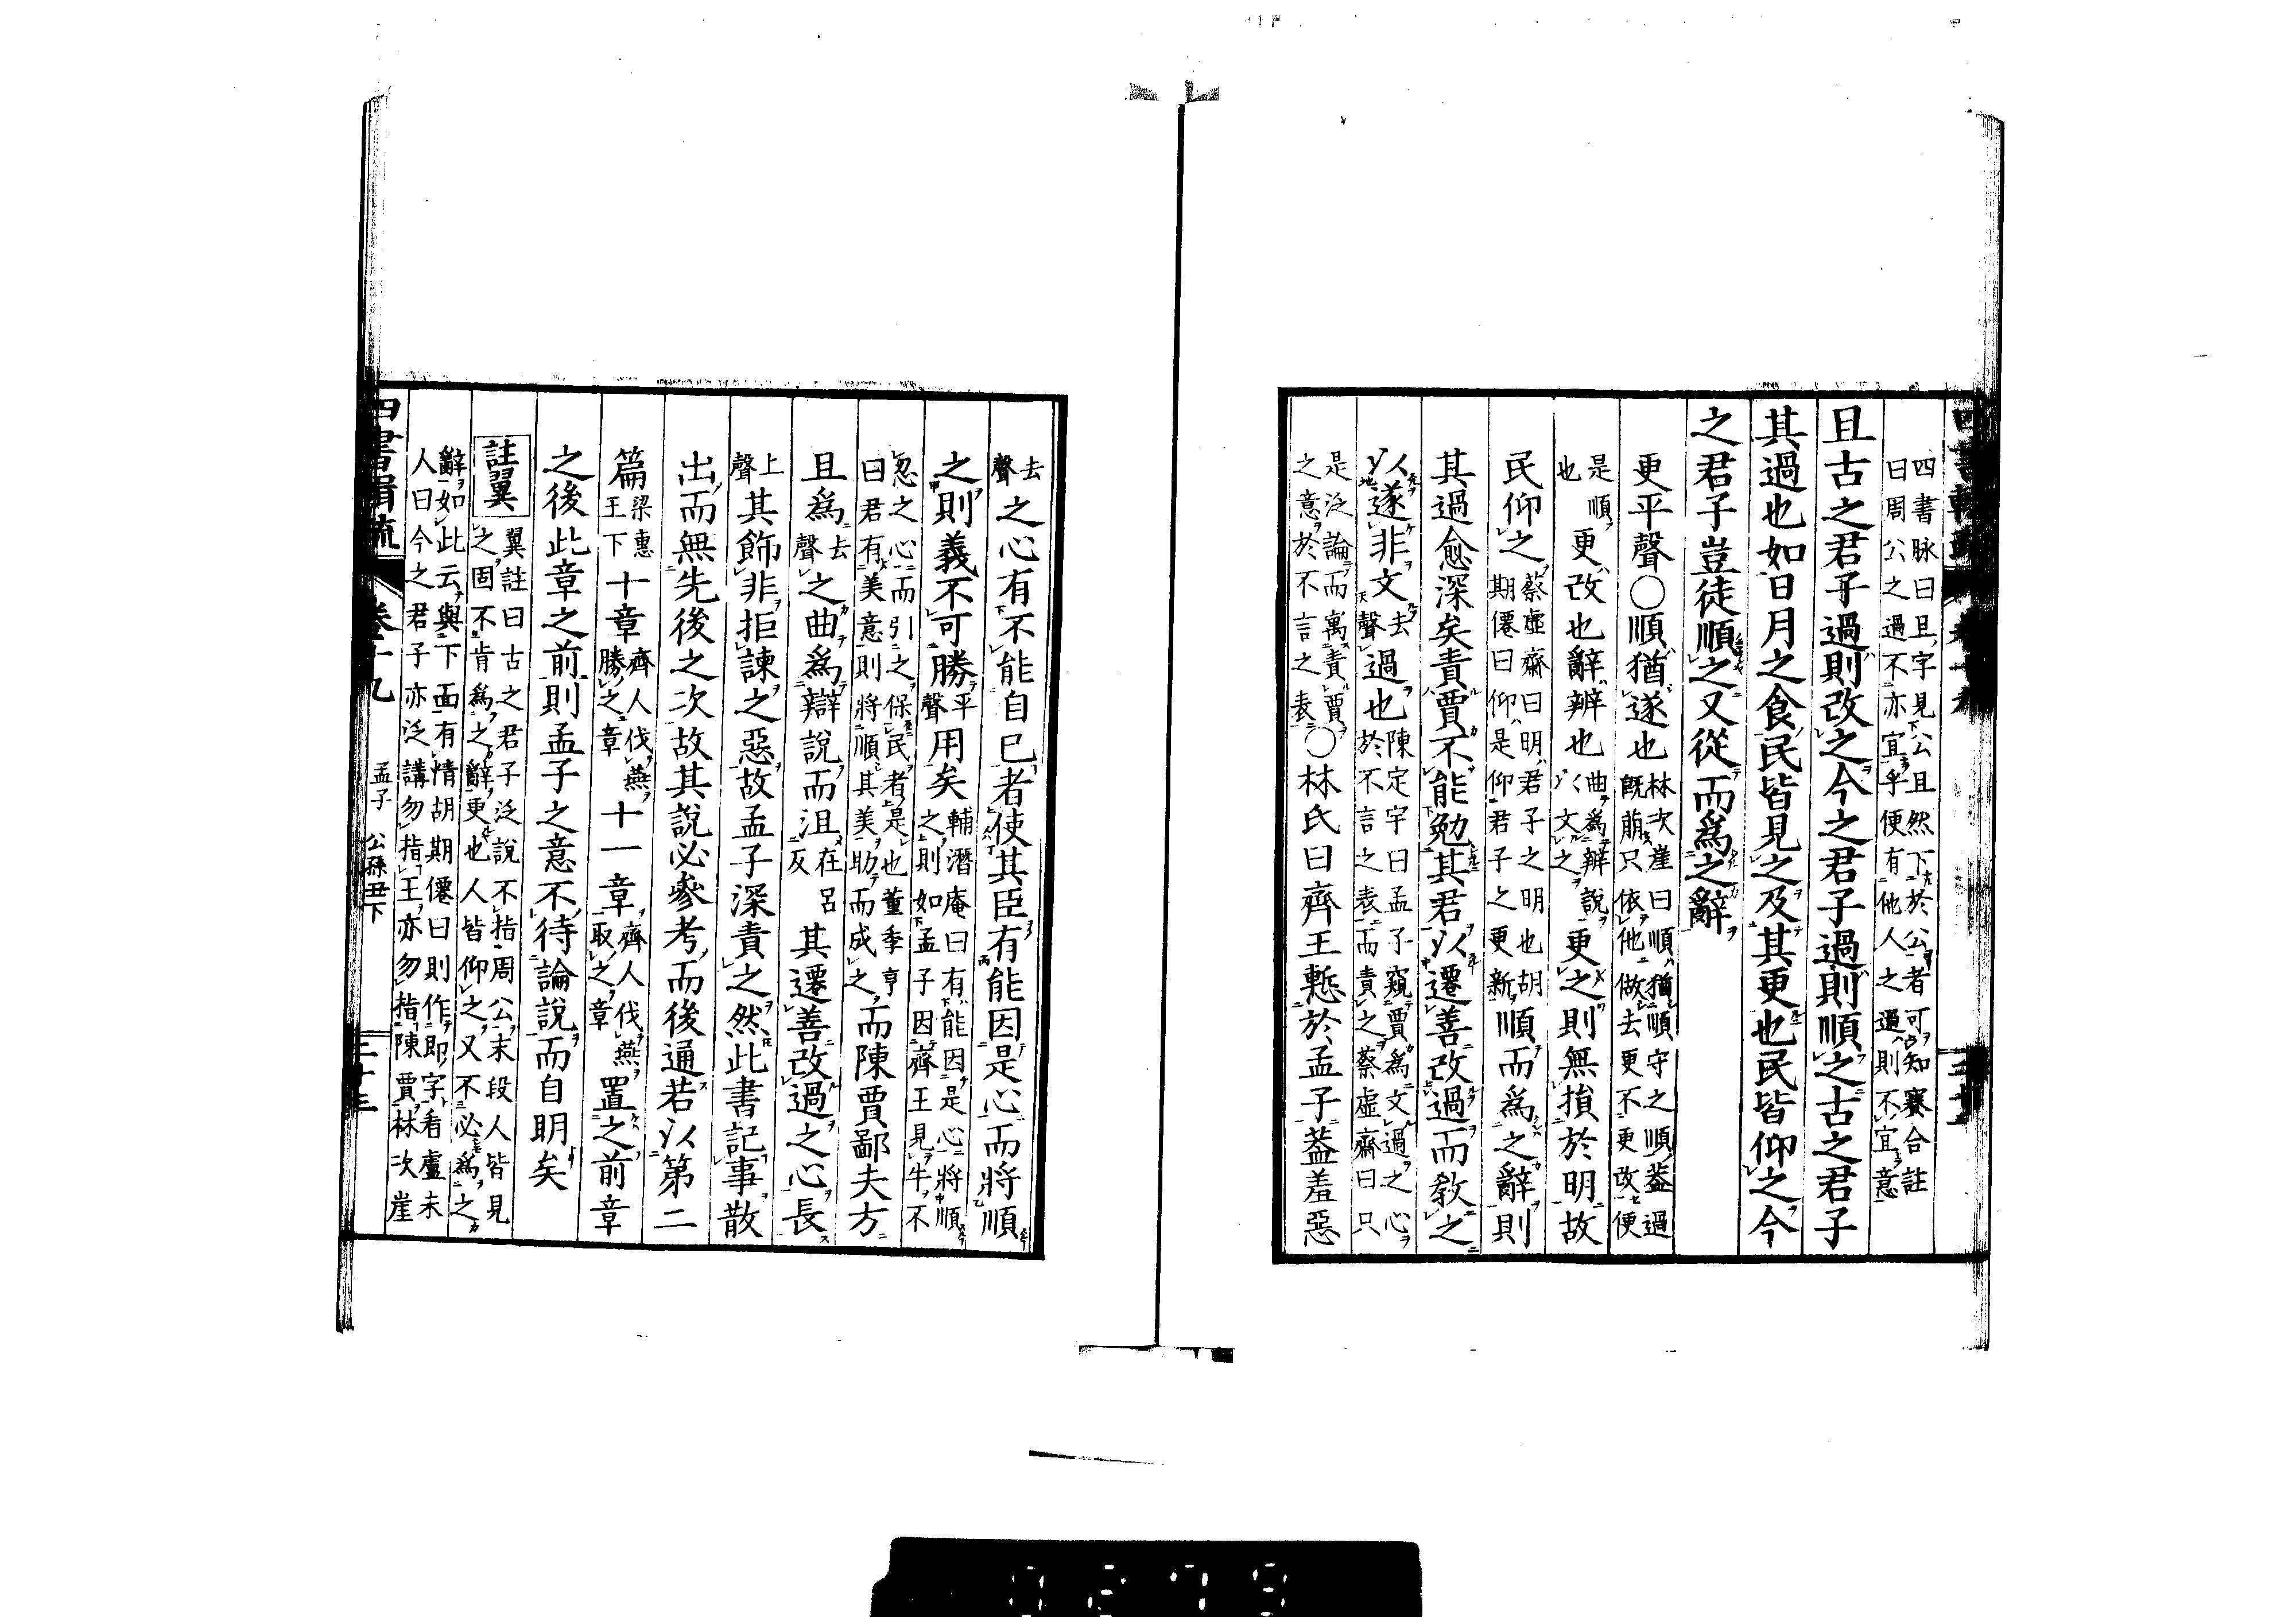 四書脉曰且字見公且然下於公者可知賽合註
曰周公之過不亦宜乎便有他人之過則不宜意
且古之君子過則改之今之君子過則順之古之君子
其過也如日月之食民皆見之及其更也民皆仰之今
之君子豈徒順之又從而爲之辭
更平聲○順猶遂也林次崖曰順猶順守之順葢過既萠只依他做去更不更改便
是順也更改也辭辨也曲爲辨說以文之更之則無損於明故
民仰之蔡虛齋曰明君子之明也胡期僊曰仰是仰君子之更新順而爲之辭則
其過愈深矣責賈不能勉其君以遷善改過而敎之
以遂非文去聲過也陳定宇曰孟子窺賈爲文過之心於不言之表而責之蔡虛齋曰只
是泛論而寓責賈之意於不言之表○林氏曰齊王慙於孟子葢羞惡
去聲之心有不能自已者使其臣有能因是心而將順
之則義不可勝平聲用矣輔潛庵曰有能因是心將順之則如孟子因齊王見牛不
忍之心而引之保民者是也董季亨曰君有美意則將順其美助而成之而陳賈鄙夫方
且爲去聲之曲爲辯說而沮在呂反其遷善改過之心長
上聲其飾非拒諫之惡故孟子深責之然此書記事散
出而無先後之次故其說必參考而後通若以第二
篇梁惠王下十章齊人伐燕勝之章十一章齊人伐燕取之章置之前章
之後此章之前則孟子之意不待論說而自明矣
註翼翼註曰古之君子泛說不指周公末段人皆見之固不肯爲之辭更也人皆仰之又不必爲之
辭如此云與下面有情胡期僊曰則作即字看盧未人曰今之君子亦泛講勿指王亦勿指陳賈林次崖
四書輯疏 卷十九 孟子 公孫丑下 三十三